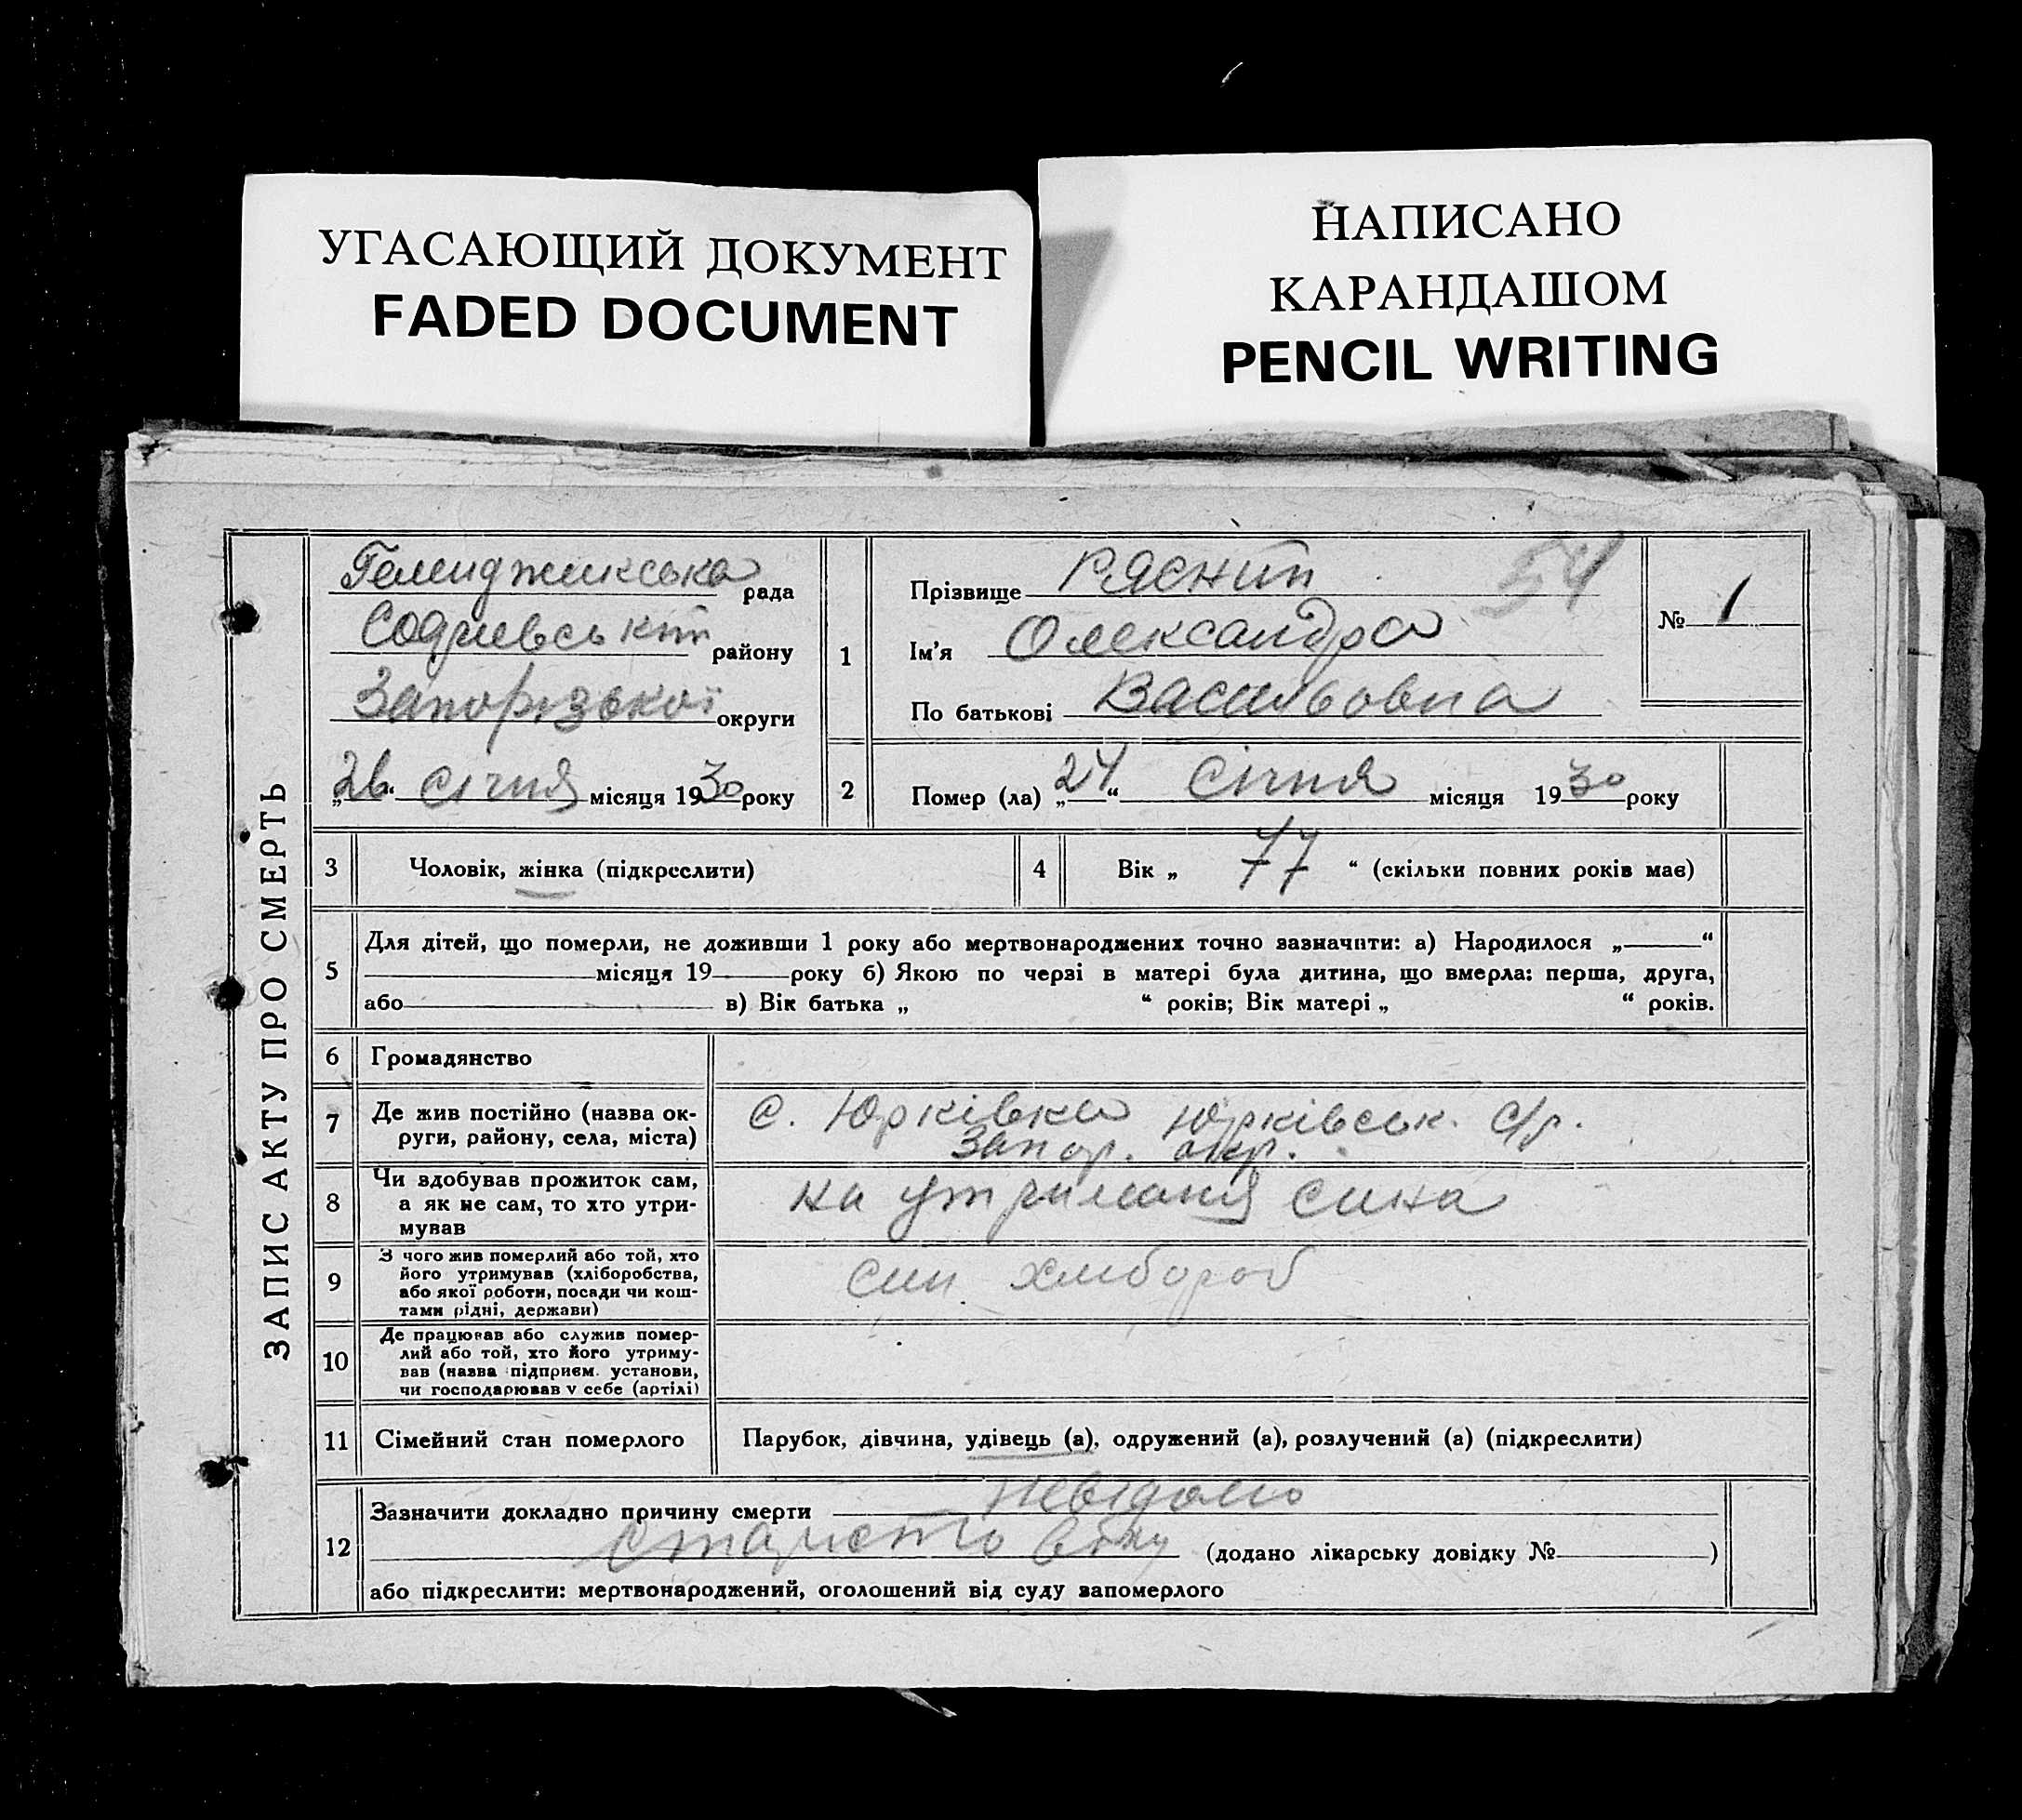 УГАСАЮЩИЙ ДОКУМЕНТ
FADED DOCUMENT
НАПИСАНО
КАРАНДАШОМ
PENCIL WRITING
ЗАПИС АКТУ ПРО СМЕРТЬ
рада
району
Запорізької округи
„26“ січня місяця 1930 року
1
Прізвище Рясний
54
Ім’я Олександра
По батькові Васильовна
№ 1
2
Помер (ла) „24“ січня місяця 1930 року
3 Чоловік, жінка (підкреслити)
4 Вік „ 77 “ (скільки повних років має)
5
Для дітей, що померли, не доживши 1 року або мертвонароджених точно зазначити: а) Народилося „ “
місяця 19 року б) Якою по черзі в матері була дитина, що вмерла: перша, друга,
або в) Вік батька „ “ років; Вік матері „ “ років.
6 Громадянство
7
Де жив постійно (назва ок-
руги, району, села, міста)
с. Юрківка Юрківськ. с/р.
Запор. окр.
8
Чи здобував прожиток сам,
а як не сам, то хто утри-
мував
на утриманя сина
9
З чого жив померлий або той, хто
його утримував (хліборобства,
або якої роботи, посади чи кош-
тами рідні, держави)
син хлибороб
10
Де працював або служив помер-
лий або той, хто його утриму-
вав (назва підприєм. установи,
чи господарював у себе (артілі)
11 Сімейний стан померлого
Парубок, дівчина, удівець (а), одружений (а), розлучений (а) (підкреслити)
12
Зазначити докладно причину смерти невідомо
(додано лікарську довідку № )
або підкреслити: мертвонароджений, оголошений від суду запомерлого